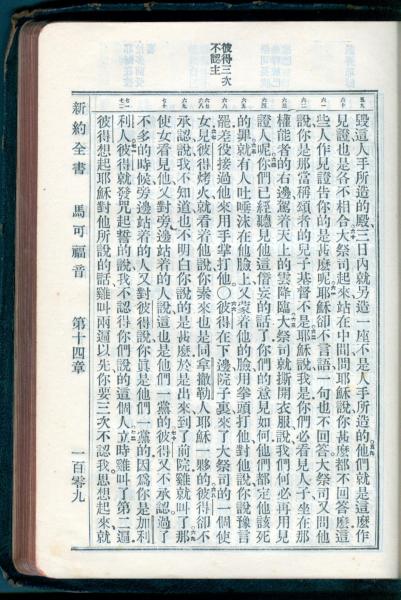 彼得三次
不認主
毀這人手所造的殿三日內就另造一座不是人手所造的他們就是這麼作
見證也是各不相合大祭司起來站在中間問耶穌說你甚麼都不回答麼這
些人作見證告你的是甚麼呢耶穌卻不言語一句也不回答大祭司又問他
說你是那當稱頌者的兒子基督不是耶穌說我是你們必看見人子坐在那
權能者的右邊駕着天上的雲降臨大祭司就撕開衣服說我們何必再用見
證人呢你們已經聽見他這僭妄的話了你們的意見如何他們都定他該死
的罪就有人吐唾沫在他臉上又蒙着他的臉用拳頭打他對他說你說豫言
罷差役接過他來用手掌打他○彼得在下邊院子裏來了大祭司的一個使
女見彼得烤火就看着他說你素來也是同拿撒勒人耶穌一夥的彼得卻不
承認說我不知道也不明白你說的是甚麼於是出來到了前院雞就叫了那
使女看見他又對旁邊站着的人說這也是他們一黨的彼得又不承認過了
不多的時候旁邊站着的人又對彼得說你眞是他們一黨的因爲你是加利
利人彼得就發咒起誓的說我不認得你們說的這個人立時雞叫了第二遍
彼得想起耶穌對他所說的話雞叫兩遍以先你要三次不認我思想起來就
新約全書 馬可福音 第十四章 一百零九